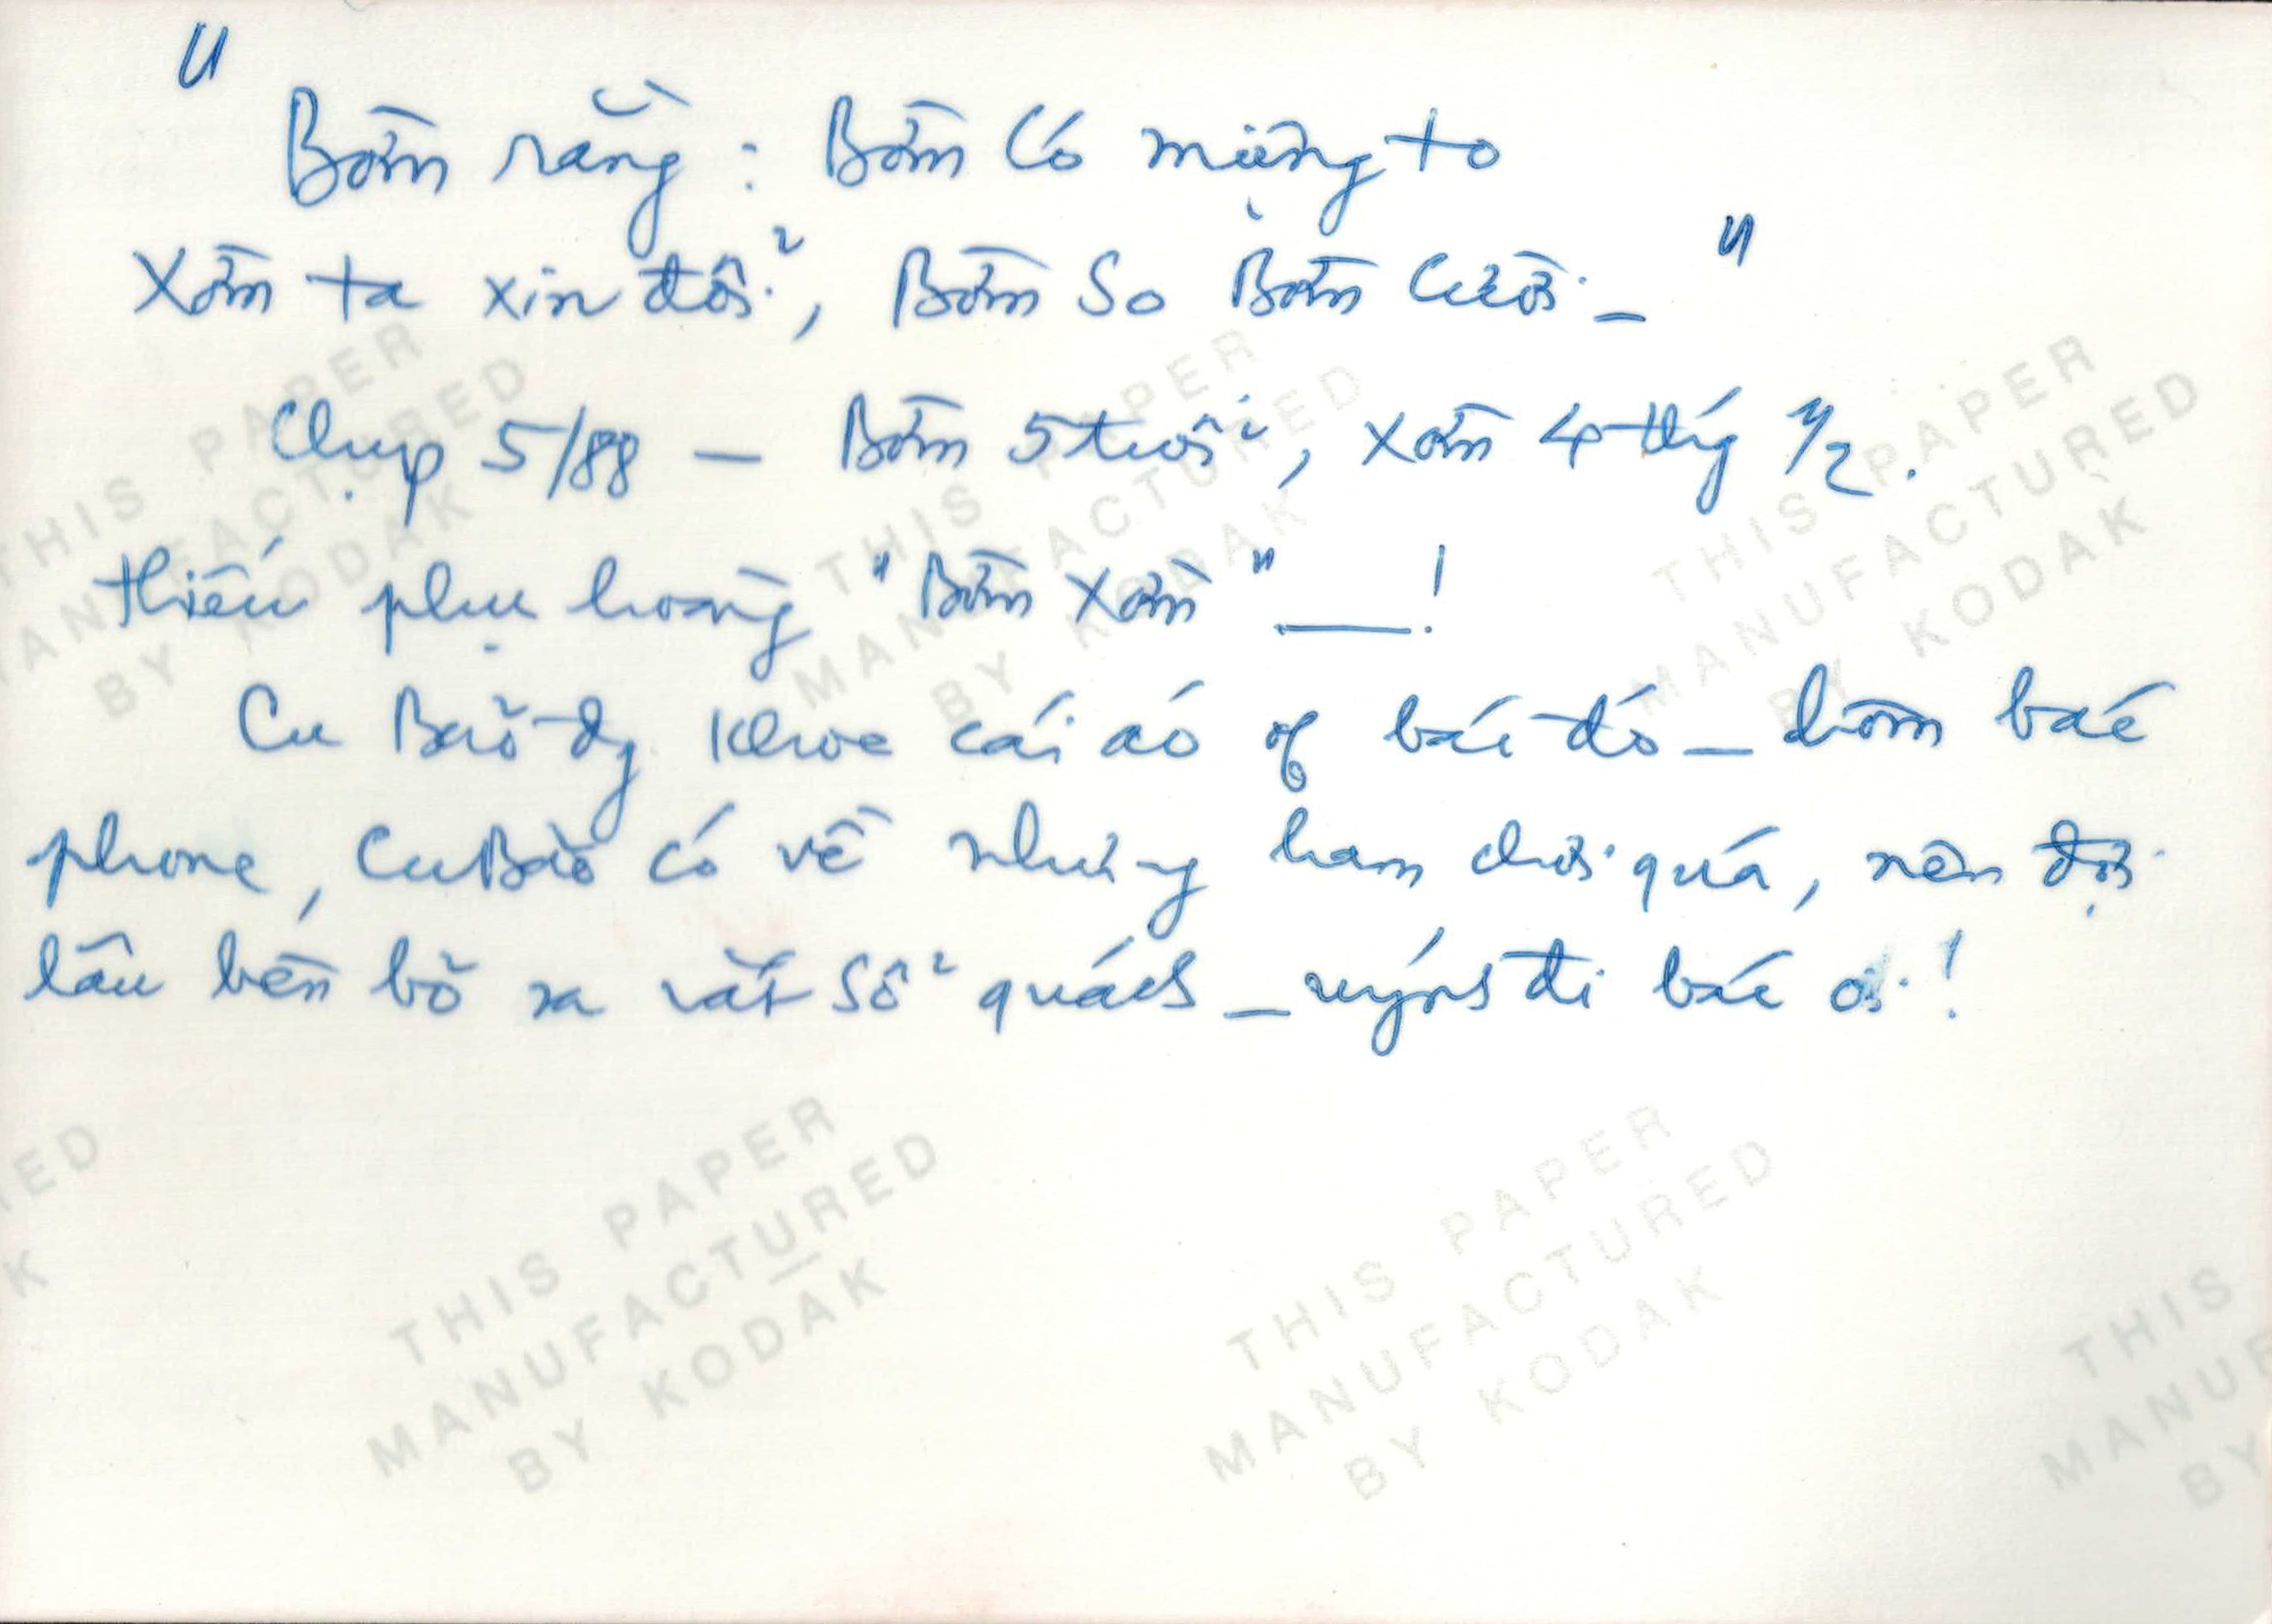 "
Bờm rằng : Bờm Có miệng to
Xồm ta xin đổi, Bờm So Bờm Cười _ "
Chụp 5/88 — Bờm 5 tuổi, Xồm 4 thg 1/2.
thiếu phụ hoàng "Bờm Xồm" __!
Cu Bảo đg khoe cái áo of bác đó _ hôm bác
phone, Cu Bảo có về nhưng ham chơi quá, nên đợi
lâu bèn bỏ ra rất sổ quách _ đi bác ơi !
THIS PAPER
MANUFACTURED
BY KODAK
THIS PAPER
MANUFACTURED
BY KODAK
THIS PAPER
MANUFACTURED
BY KODAK
THIS PAPER
MANUFACTURED
BY KODAK
THIS PAPER
MANUFACTURED
BY KODAK